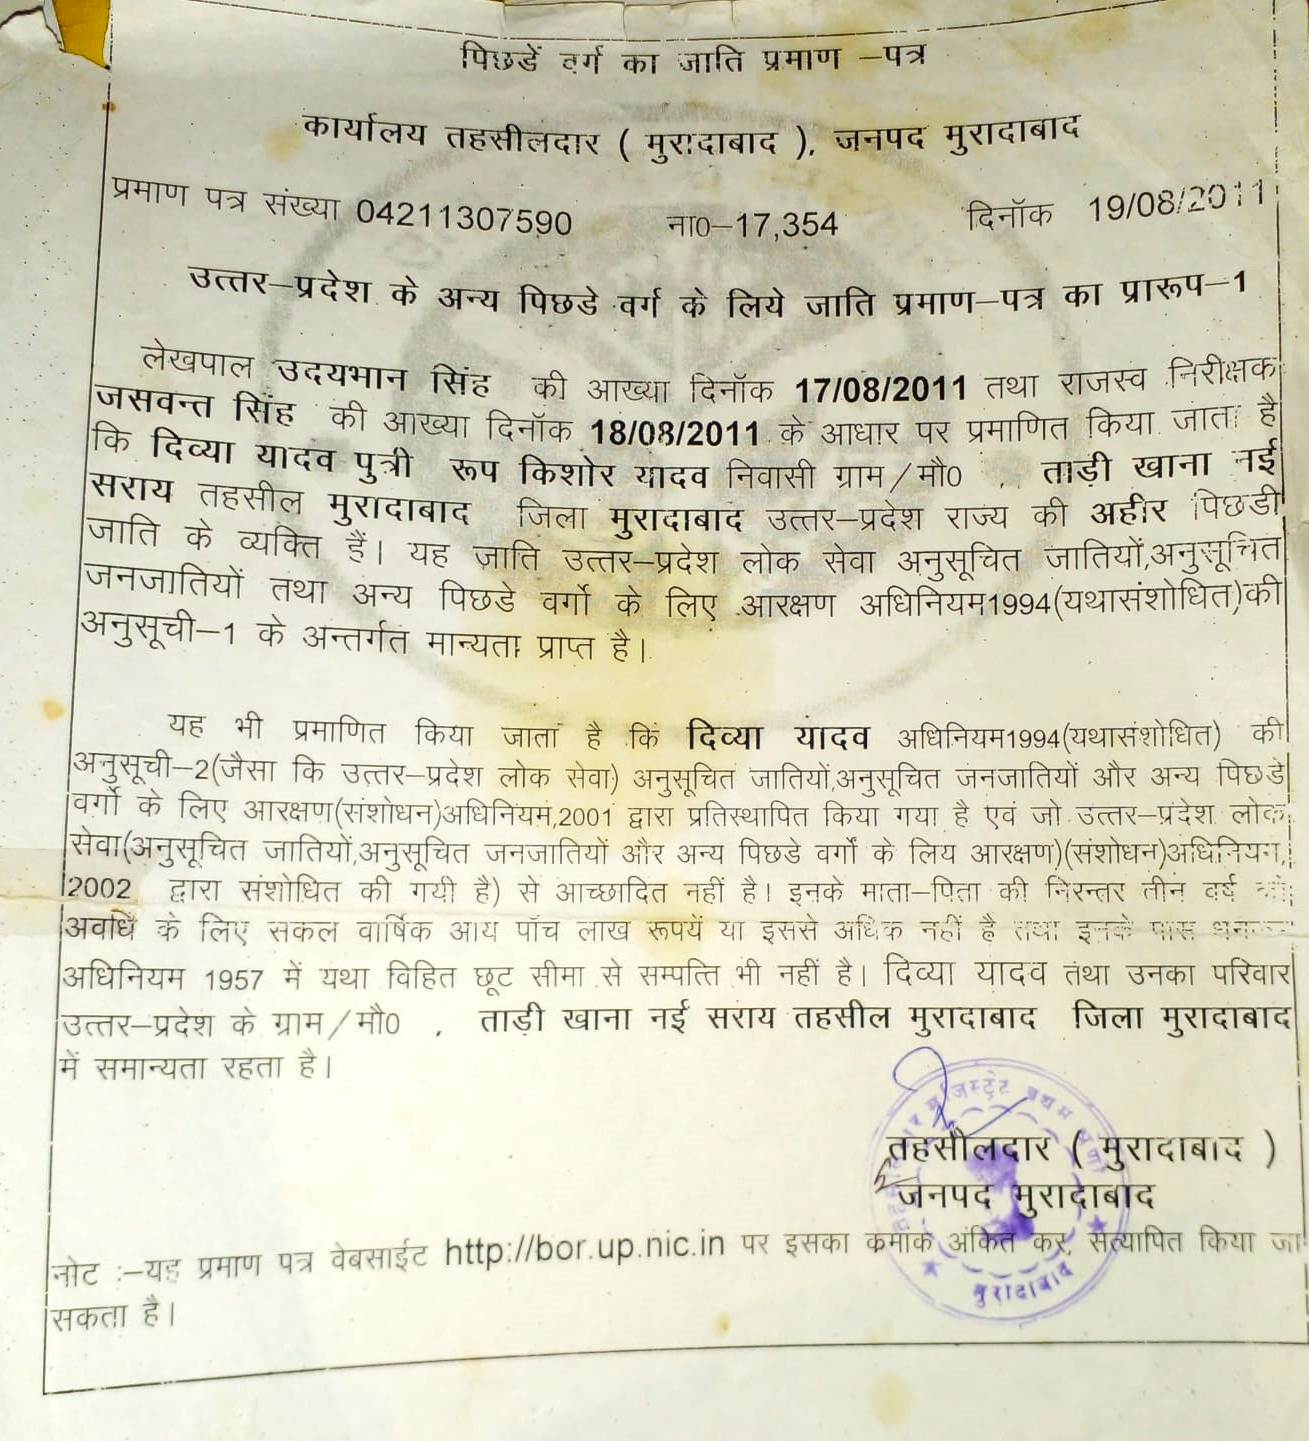 पिछडें वर्ग का जाति प्रमाण –पत्र
कार्यालय तहसीलदार ( मुरादाबाद ), जनपद मुरादाबाद
प्रमाण पत्र संख्या 04211307590 ना0–17,354 दिनॉक 19/08/2011
उत्तर–प्रदेश के अन्य पिछडे वर्ग के लिये जाति प्रमाण–पत्र का प्रारूप–1
लेखपाल उदयभान सिंह की आख्या दिनॉक 17/08/2011 तथा राजस्व निरीक्षक
जसवन्त सिंह की आख्या दिनॉक 18/08/2011 के आधार पर प्रमाणित किया जाता है
कि दिव्या यादव पुत्री रूप किशोर यादव निवासी ग्राम/मौ0 , ताड़ी खाना नई
सराय तहसील मुरादाबाद जिला मुरादाबाद उत्तर–प्रदेश राज्य की अहीर पिछडी
जाति के व्यक्ति हैं। यह जाति उत्तर–प्रदेश लोक सेवा अनुसूचित जातियों,अनुसूचित
जनजातियों तथा अन्य पिछडे वर्गो के लिए आरक्षण अधिनियम1994(यथासंशोधित)की
अनुसूची–1 के अन्तर्गत मान्यता प्राप्त है।
यह भी प्रमाणित किया जाता है कि दिव्या यादव अधिनियम1994(यथासंशोधित) की
अनुसूची–2(जैसा कि उत्तर–प्रदेश लोक सेवा) अनुसूचित जातियों,अनुसूचित जनजातियों और अन्य पिछडे
वर्गो के लिए आरक्षण(संशोधन)अधिनियम,2001 द्वारा प्रतिस्थापित किया गया है एवं जो उत्तर–प्रदेश लोक
सेवा(अनुसूचित जातियों,अनुसूचित जनजातियों और अन्य पिछडे वर्गों के लिय आरक्षण)(संशोधन)अधिनियम,
2002 द्वारा संशोधित की गयी है) से आच्छादित नहीं है। इनके माता–पिता की निरन्तर तीन वर्ष की
अवधि के लिए सकल वार्षिक आय पॉच लाख रूपयें या इससे अधिक नहीं है तथा इनके पास धनकर
अधिनियम 1957 में यथा विहित छूट सीमा से सम्पत्ति भी नहीं है। दिव्या यादव तथा उनका परिवार
उत्तर–प्रदेश के ग्राम/मौ0 , ताड़ी खाना नई सराय तहसील मुरादाबाद जिला मुरादाबाद
में समान्यता रहता है।
तहसीलदार ( मुरादाबाद )
जनपद मुरादाबाद
मुरादाबाद
नोट :–यह प्रमाण पत्र वेबसाईट http://bor.up.nic.in पर इसका कमांक अंकित कर, सत्यापित किया जा
सकता है।